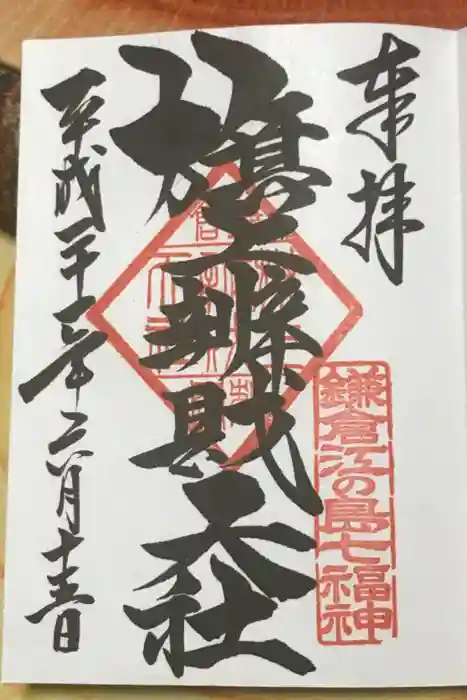 奉拝
鎌倉江の島七福神
旗上辨財天社
平成二十二年六月十五日